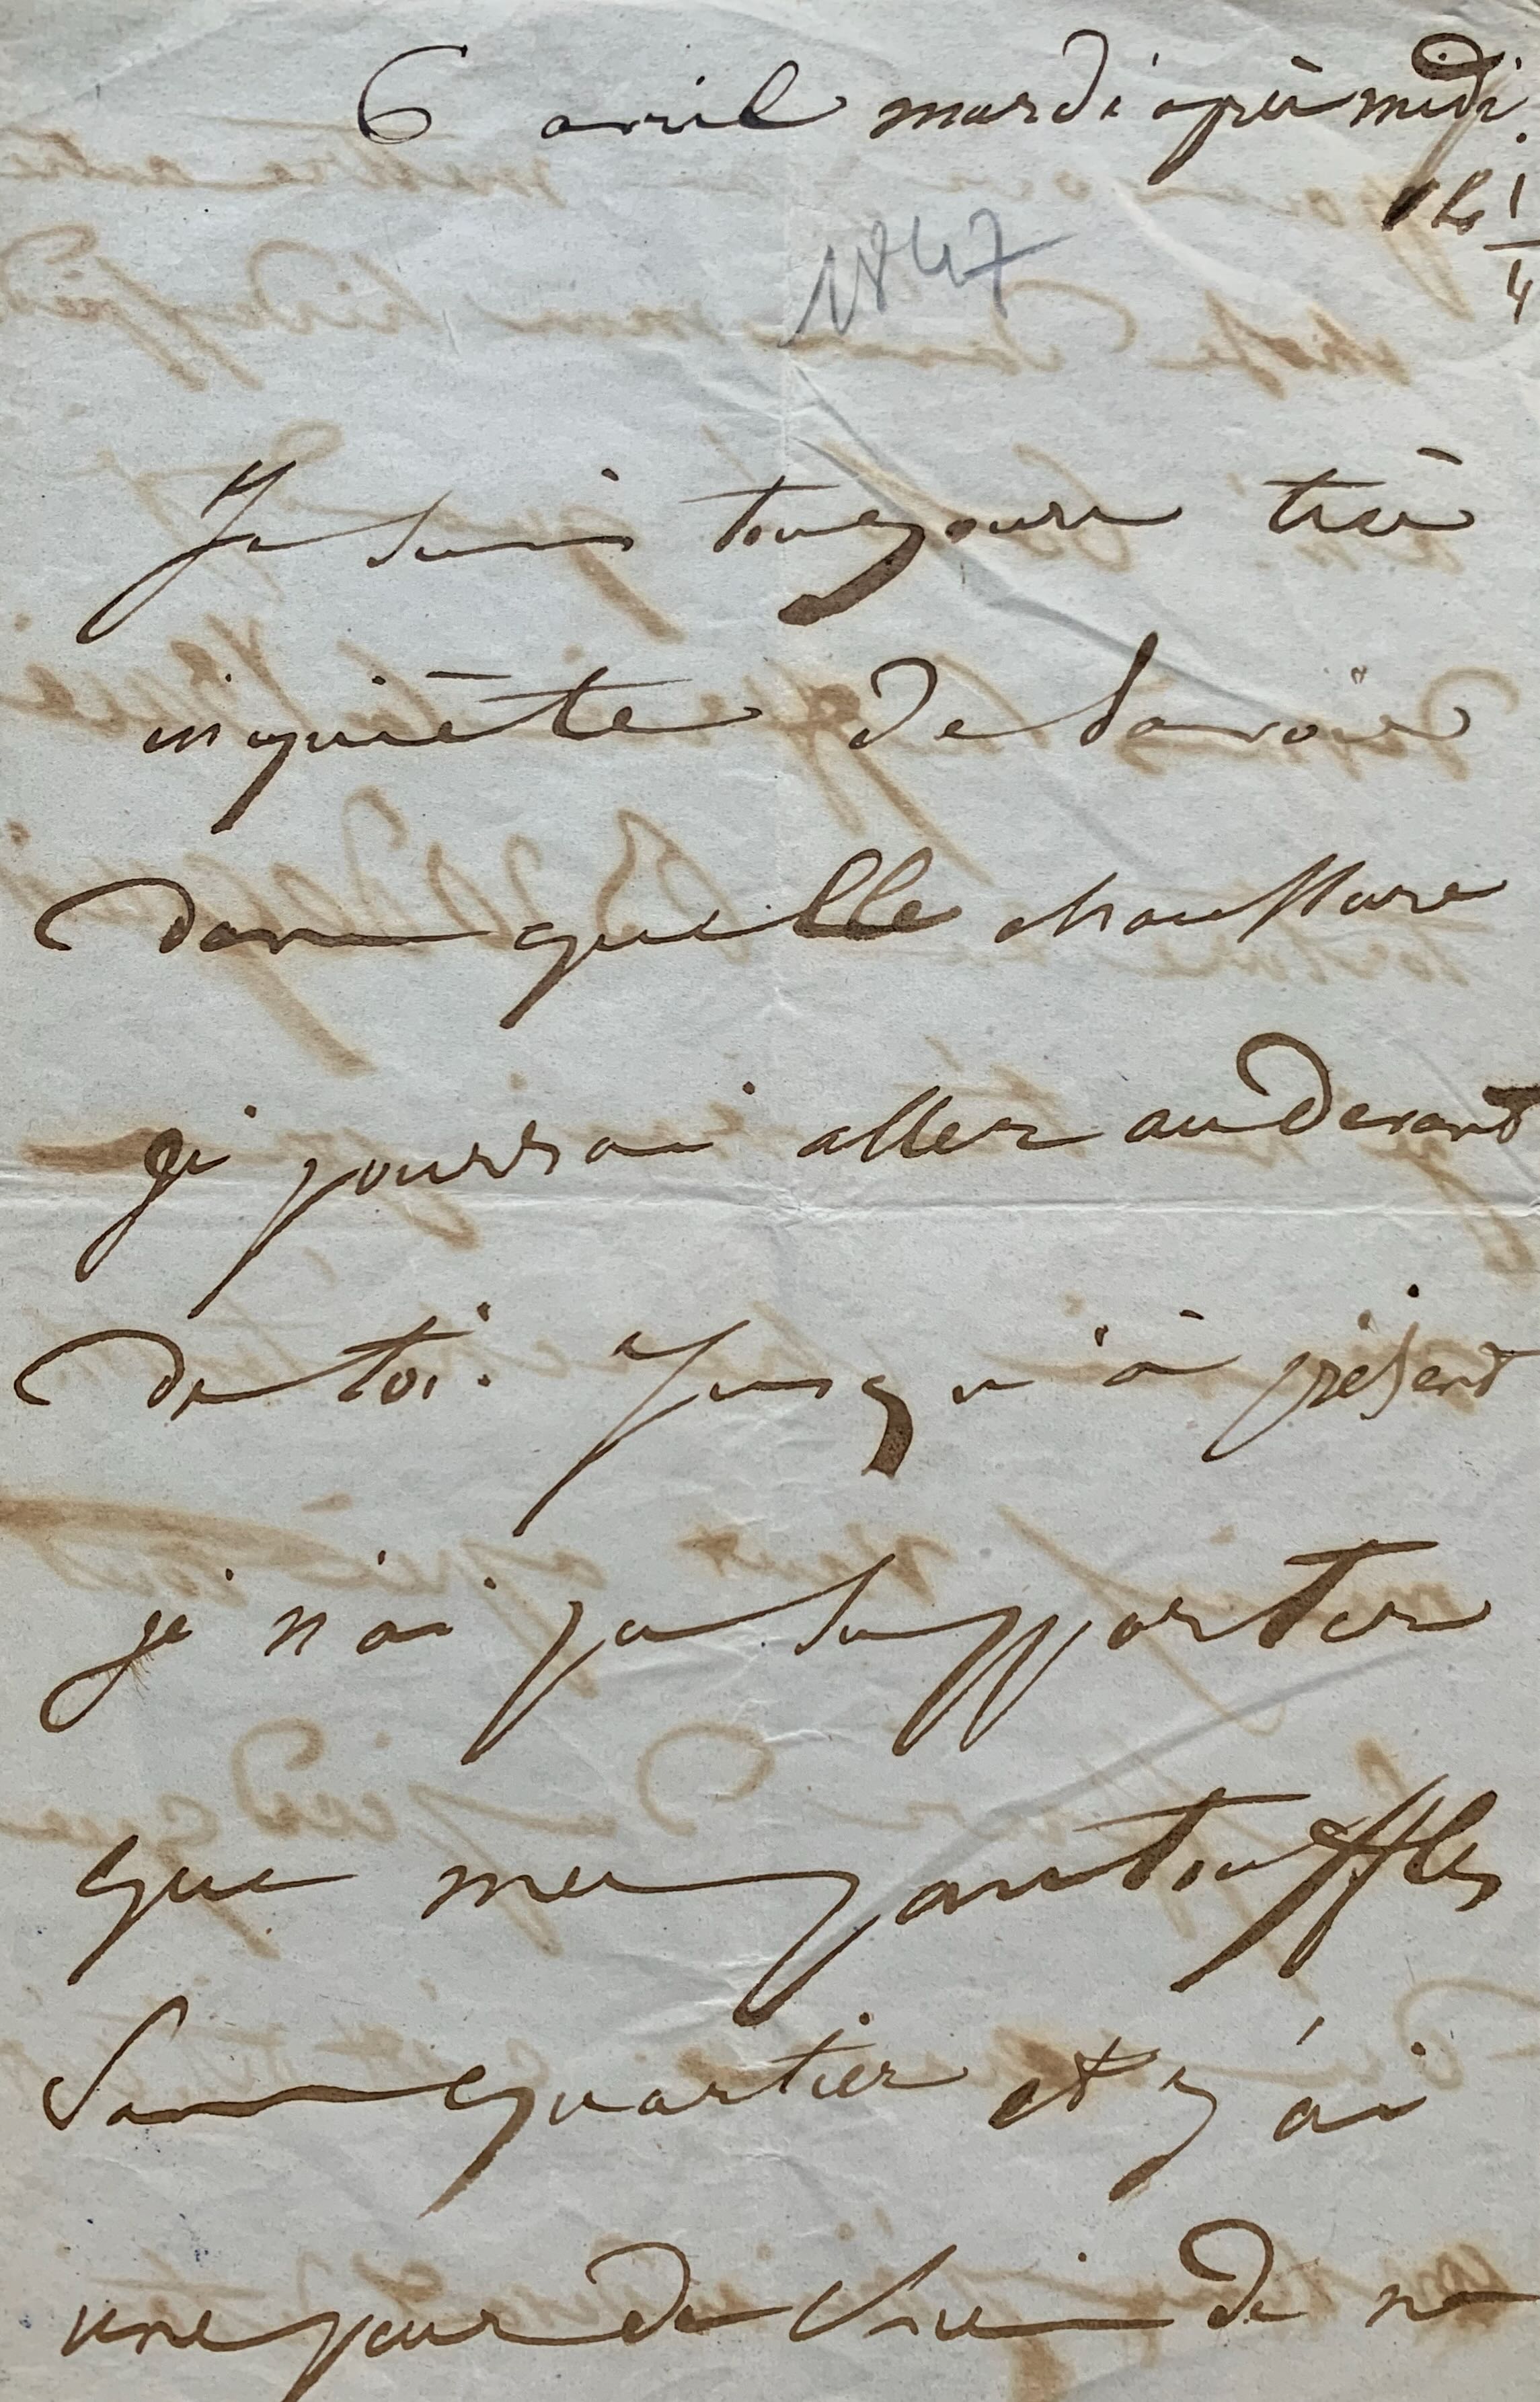 6 avril mardi après midi
12 1/4
1847
Je suis toujours très
inquiète de savoir
dans quelle chaussure
je pourrai aller au devant
de toi. Jusqu'à présent
je n'ai pu supporter
que mes pantouffles
sans quartier et j'ai
une peur de chien de ne